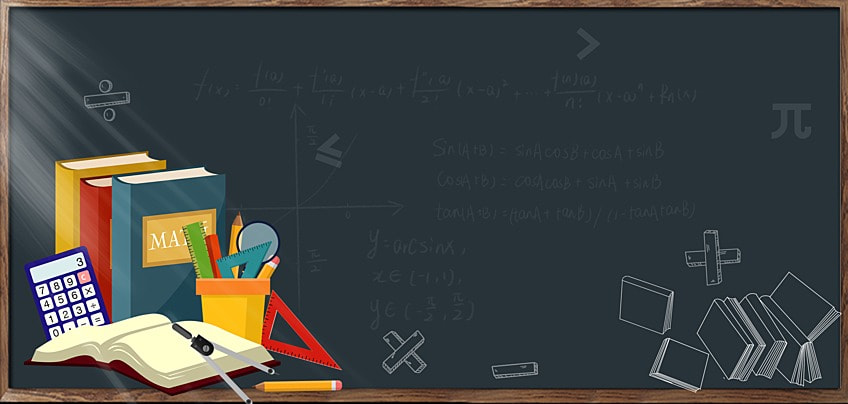 f(x) = f(a)/0! + f'(a)/1! (x-a) + f''(a)/2! (x-a)² + ... + f⁽ⁿ⁾(a)/n! (x-a)ⁿ + Rₙ(x)
÷
>
π
≤
π/2
π/2
Sin(A+B) = sinAcosB+cosA+sinB
Cos(A+B) = cosAcosB + sinA + sinB
tan(A+B) = (tanA + tanB) / (1-tanAtanB)
y = arcsinx,
x ∈ (-1, 1),
y ∈ (-π/2, π/2)
MAT
3
7 8 9 C
4 5 6 X
1 2 3 ÷
0
+
×
−